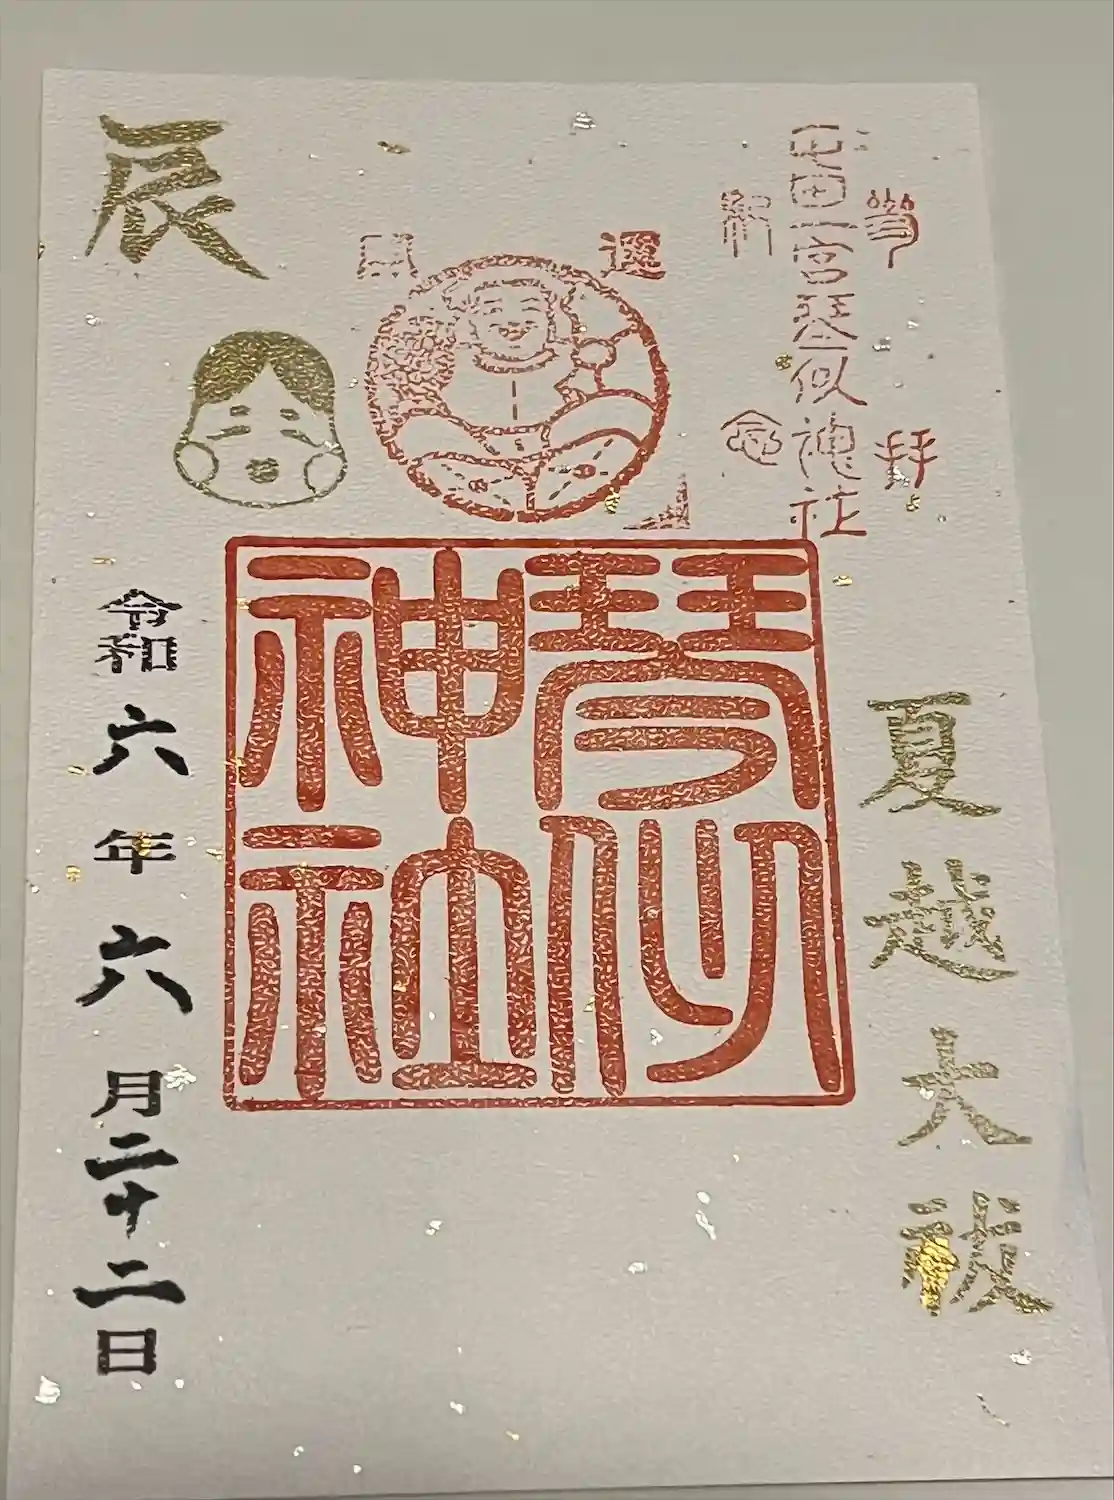 參拝
屯田一宮琴似神社
紀念
夏越大祓
開運
琴似
神社
辰
令和六年六月二十二日